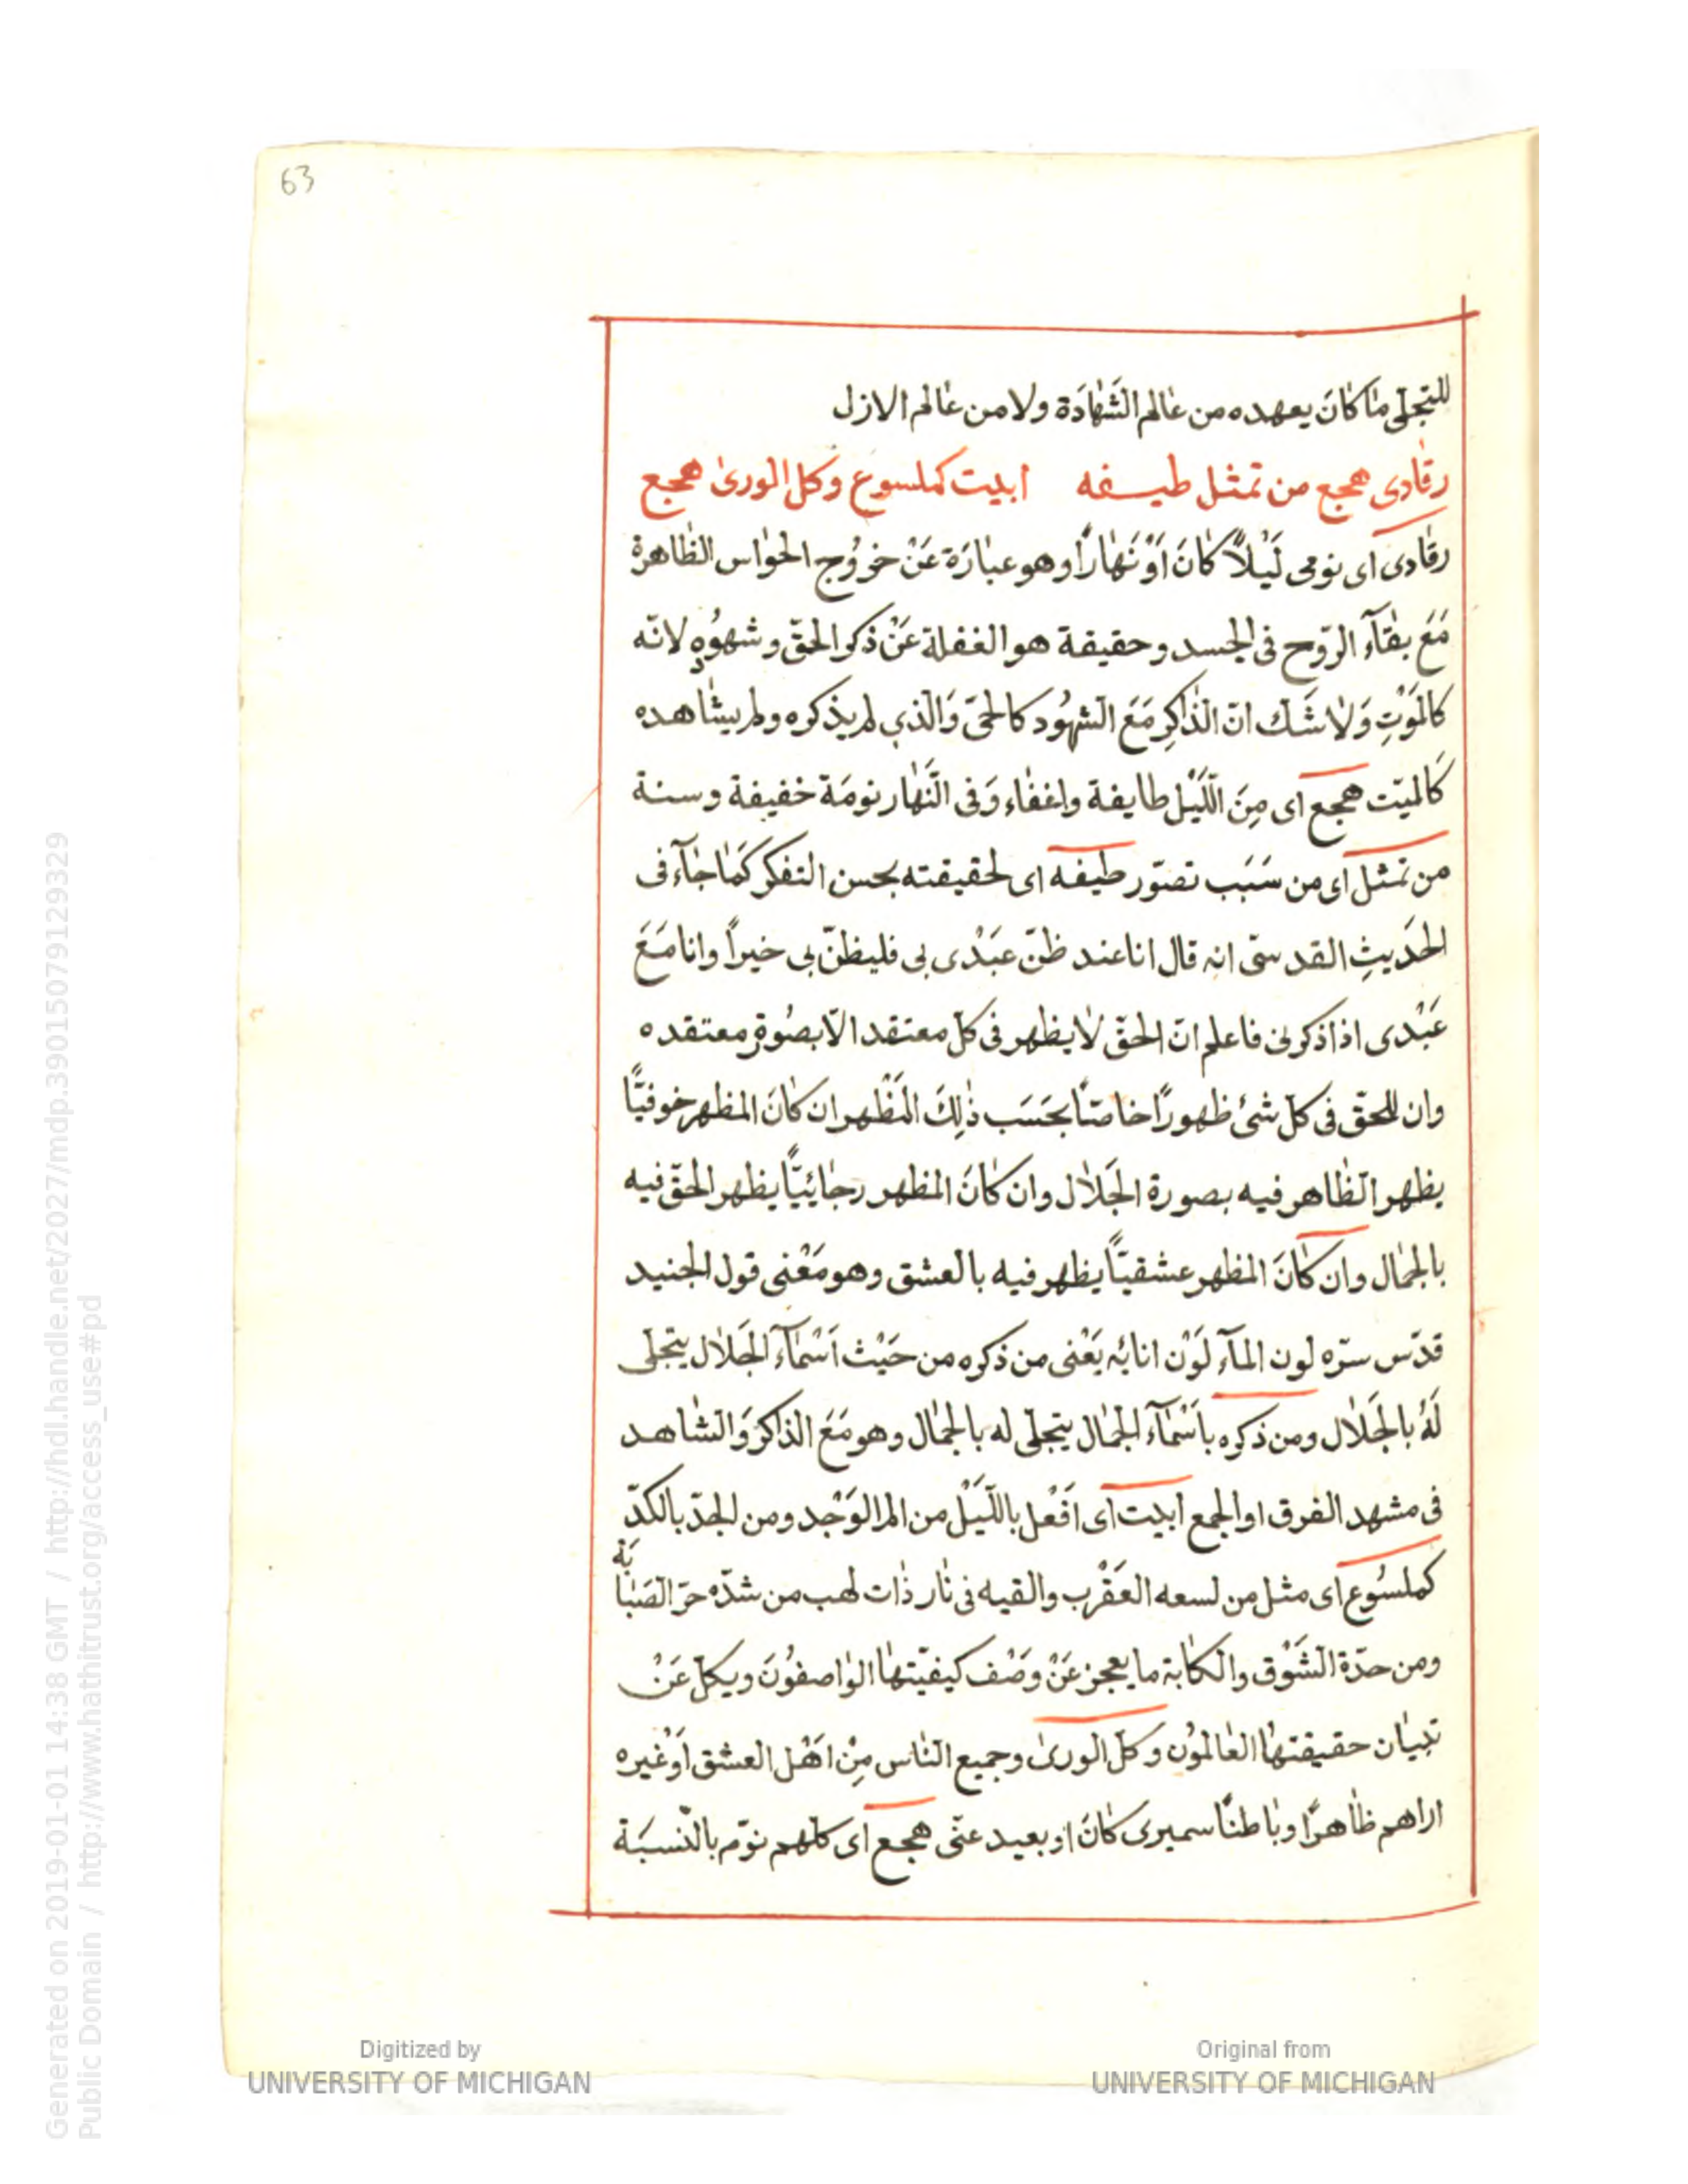 63
للتجلّى مٰا كٰانَ يعهده من عٰالم الشَّهٰادَة ولا من عٰالم الازل
رقٰادى هجع من تمثل طيفه ابيت كملسوع وكل الورىٰ هجع
رقٰادى اى نومى لَيْلاً كٰانَ اَوْ نَهٰاراً وهو عبٰارَة عَنْ خروُج الحوٰاس الظٰاهرة
مَعَ بقٰآء الرّوح فى الجسد وحقيقة هو الغفلة عَنْ ذكر الحقّ وشهوُده لانّه
كالمَوْتِ وَلاٰ شَك انّ الذٰاكِر مَعَ الشهوُد كالحىّ وَالّذي لم يذكره ولم يشٰاهده
كَالميّت هجع اى مِنَ اللّيْل طايفة واغفٰاء وَفى النَّهٰار نومَة خفيفة وسنة
من تمثل اى من سَبَب تصوّر طيفه اى لحقيقته بحسن التفكر كَمٰا جٰآء فى
الحَديثِ القدسىّ انه قال انا عند ظنّ عَبْدى بى فليظنّ بى خيراً وانا مَعَ
عَبْدى اذا ذكرنى فاعلم انّ الحقّ لاٰ يظهر فى كلّ معتقد الاّ بصوُرة معتقده
وان للحقّ فى كلّ شئ ظهوراً خاصّاً بحَسَب ذٰلِكَ المَظْهر ان كٰانَ المظهر خوفيّاً
يظهر الظٰاهر فيه بصورة الجَلاٰل وان كٰانَ المظهر رجٰائيّاً يظهر الحقّ فيه
بالجمٰال وان كٰانَ المظهر عشقيّاً يظهر فيه بالعشق وهو مَعْنى قول الجنيد
قدّس سرّه لون المٰآء لَوْن انائه يَعْنى من ذكره من حَيْث اَسْمٰآء الجَلاٰل يتجلّى
لَهُ بالجَلاٰل ومن ذكره باَسْمٰآء الجمٰال يتجلّى له بالجمٰال وهو مَعَ الذاكر وَالشٰاهد
فى مشهد الفرق او الجمع ابيت اى افَعْل باللّيَيْل من الم الوَجْد ومن الجدّ بالكدّ
كملسُوع اى مثل من لسعه العَقْرب والقيه فى نٰار ذٰات لهب من شدّه حرّ الصَبٰابَة
ومن حدّة الشَوْق والكآبة ما يعجز عَنْ وصَْف كيفيّتهٰا الوٰاصفوُنَ ويكلّ عَنْ
تبيٰان حقيقتهٰا العٰالموُن وكلّ الورىٰ وجميع النٰاس مِنْ اهَْل العشق اَوْ غيره
اراهم ظٰاهراً وبٰاطناً سميرى كٰانَ او بعيد عنّى هجع اى كلّهم نوّم بالنّسبَة
Digitized by
UNIVERSITY OF MICHIGAN
Original from
UNIVERSITY OF MICHIGAN
Generated on 2019-01-01 14:38 GMT / http://hdl.handle.net/2027/mdp.39015079129329
Public Domain / http://www.hathitrust.org/access_use#pd